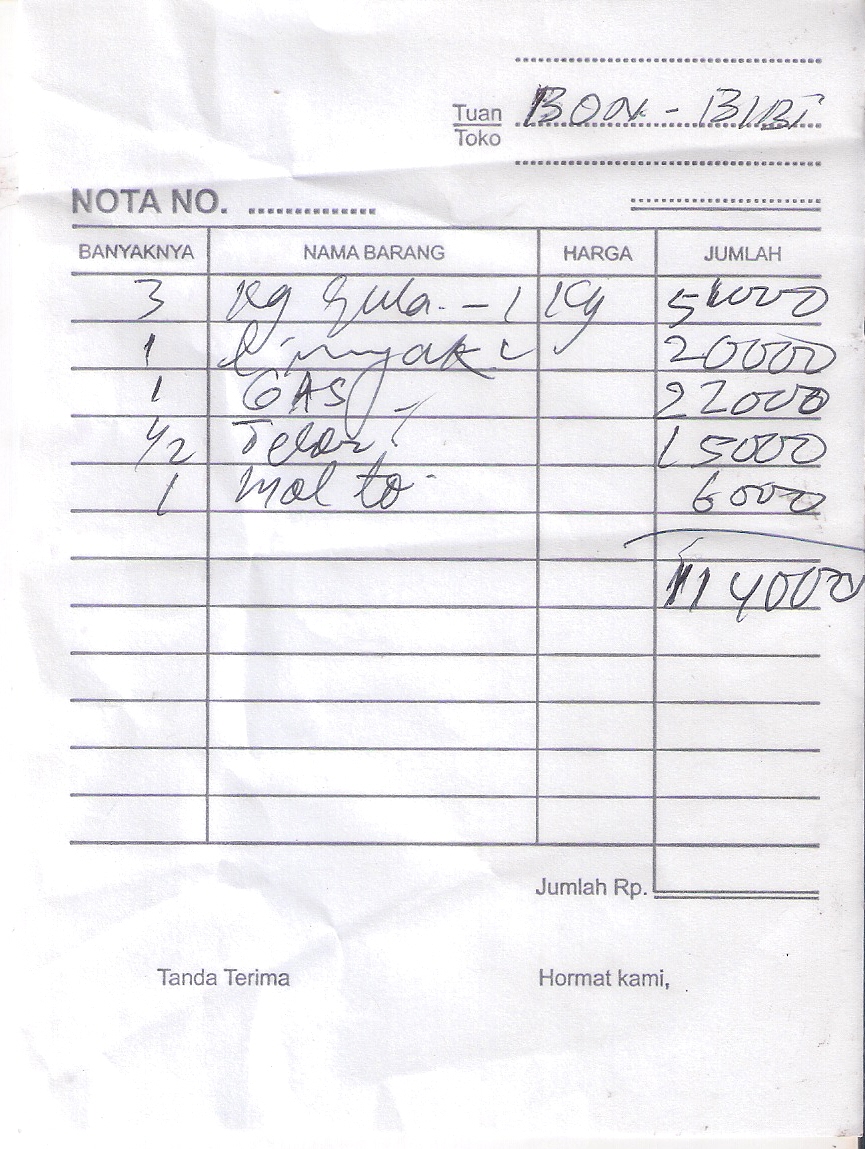 Tuan BON - BIBI
Toko
NOTA NO.
BANYAKNYA NAMA BARANG HARGA JUMLAH
3 Kg Gula - 1 Kg 51000
1 minyak 20000
1 GAS 22000
1/2 Telor 15000
1 mol to 6000
114000
Jumlah Rp.
Tanda Terima Hormat kami,